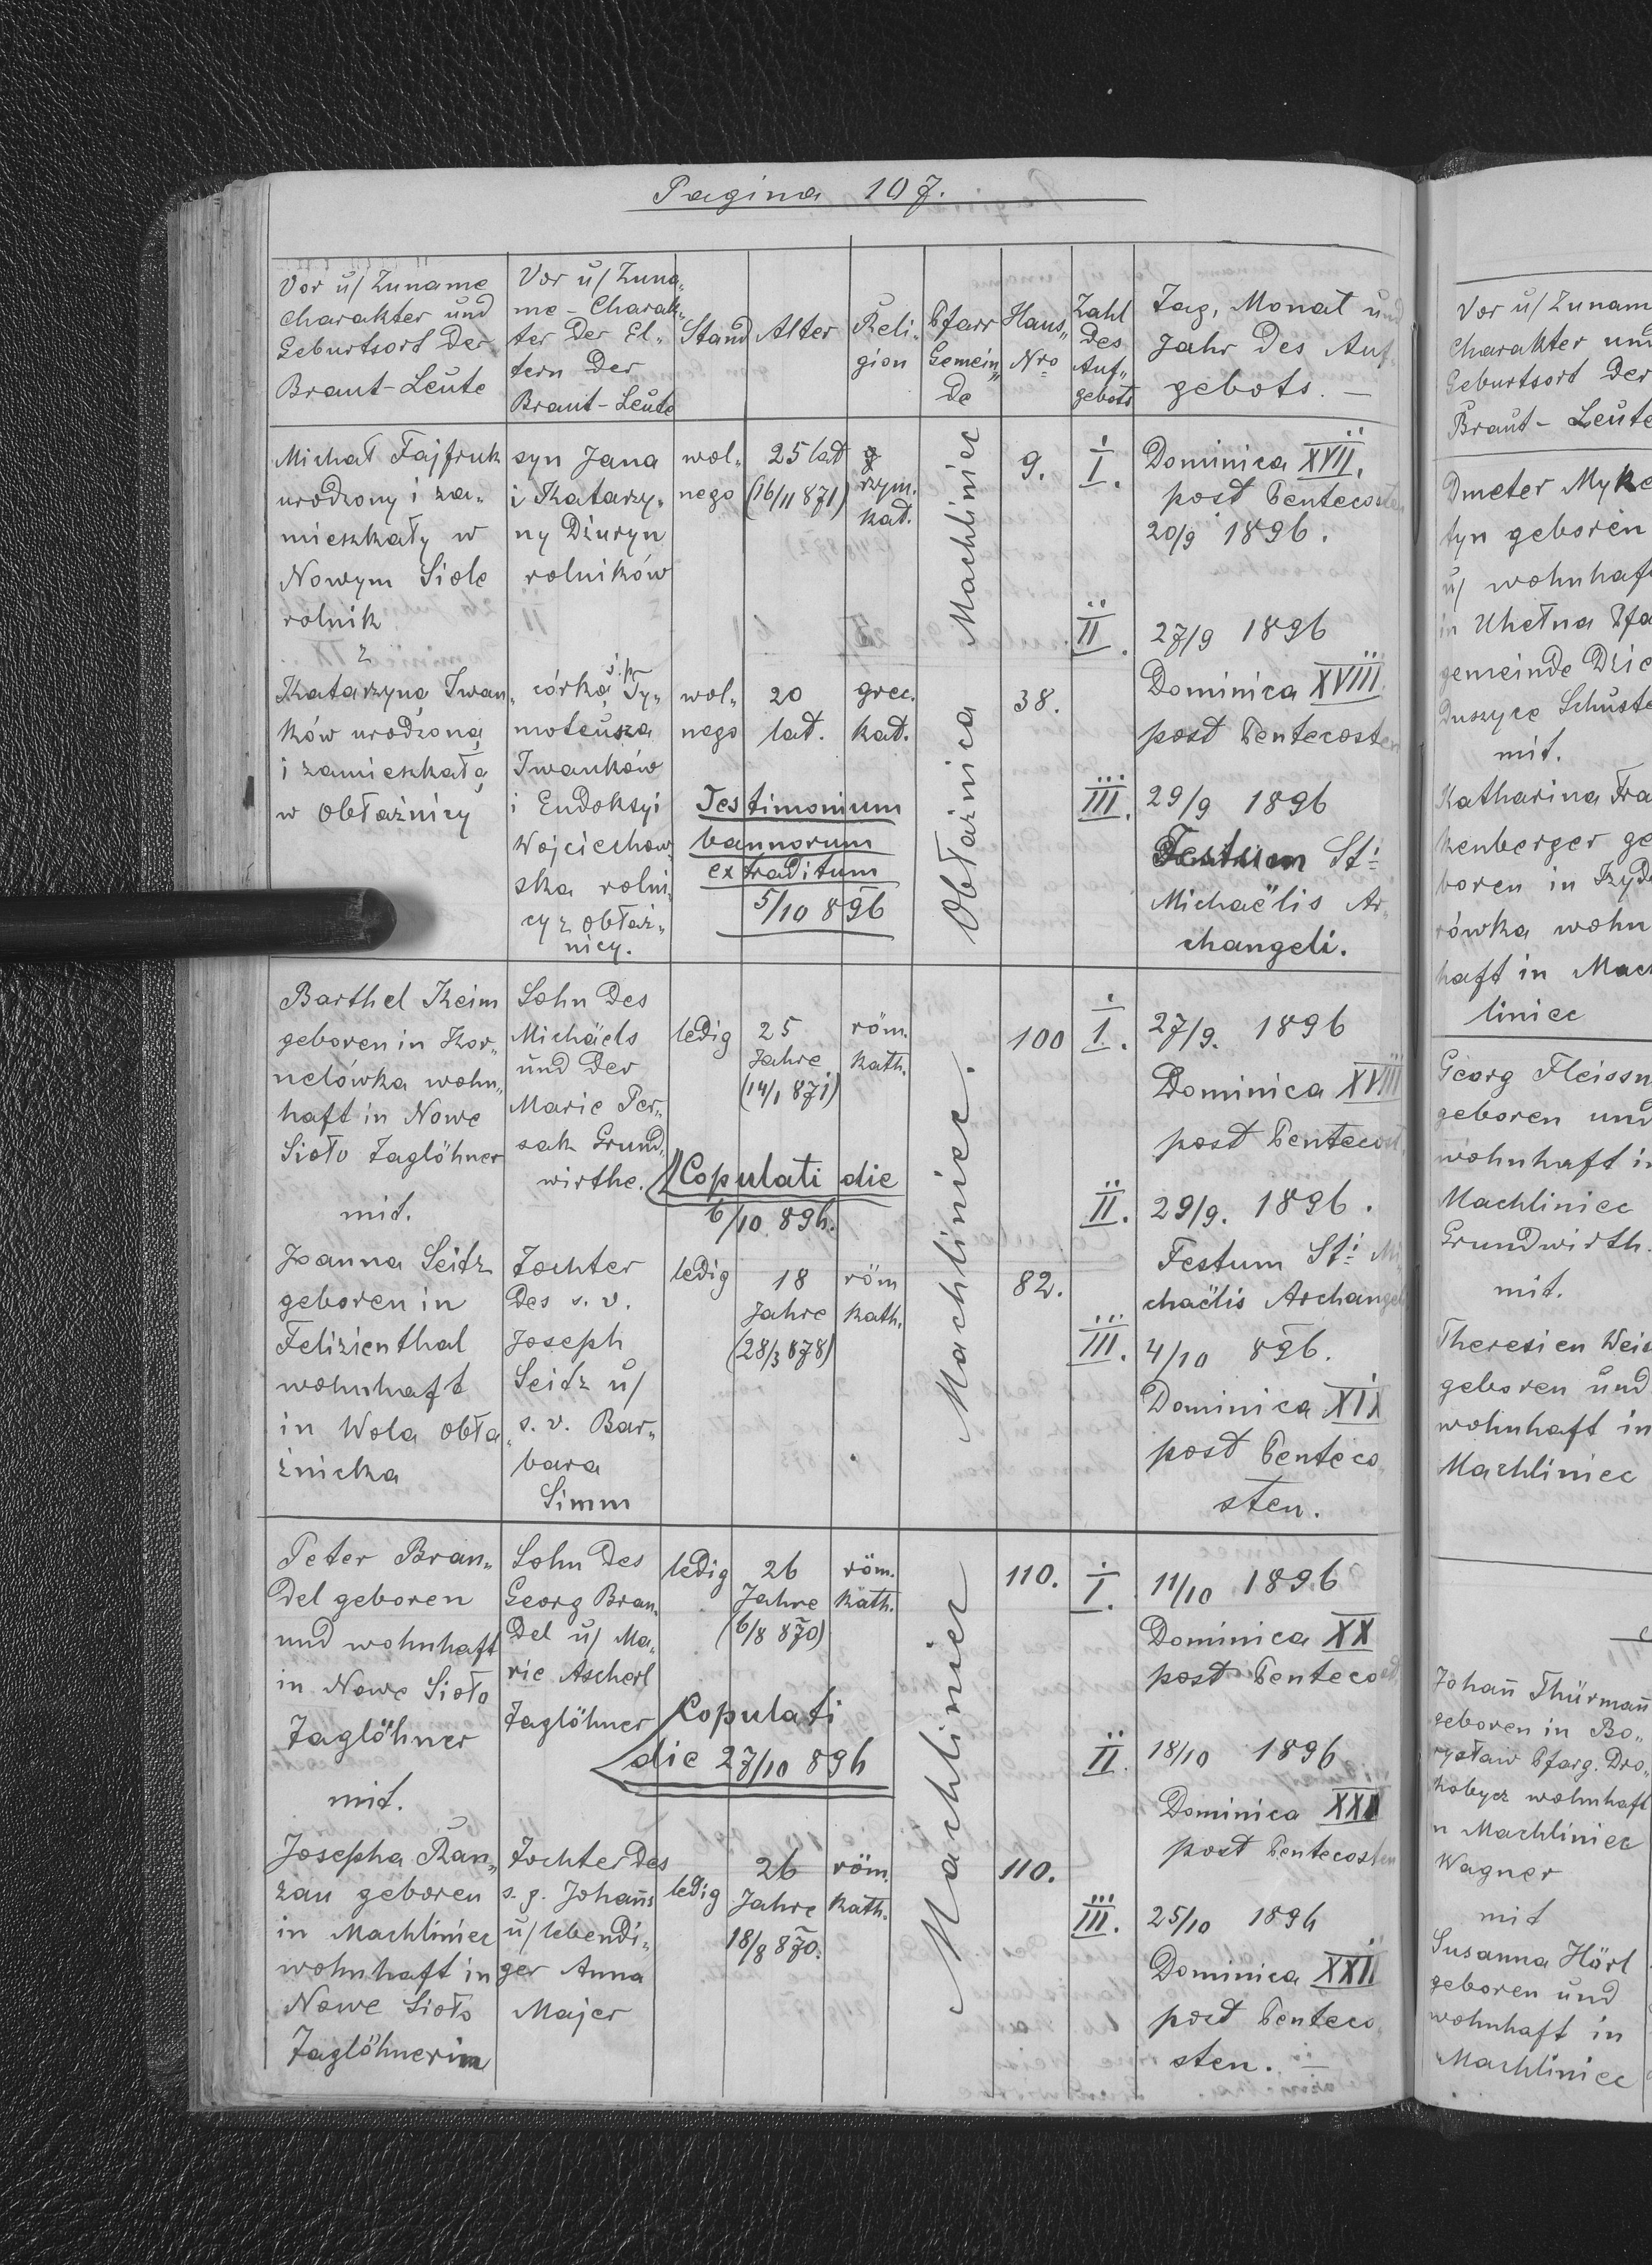 Pagina 107.
Vor u/ Zuname
Charakter und
Geburtsort der
Braut-Leute
Vor u/ Zuna„
me - Charak„
ter der El„
tern der
Braut-Leute
Stand
Alter
Reli„
gion
Pfarr
Gemein„
de
Haus„
Nro
Zahl
des
Auf„
gebots
Tag, Monat und
Jahr des Auf„
gebots. —
Michał Fajfruk
urodzony i za„
mieszkały w
Nowym Siole
rolnik
z
Katarzyną Iwan„
ków urodzoną
i zamieszkałą
w Obłaźnicy
syn Jana
i Katarzy„
ny Dziuryn
rolników
córką ś.p. Ty„
moteusza
Iwanków
i Eudoksyi
Wojciechow„
ska rolni„
cy z obłaź„
nicy.
wol„
nego
25 lat
(16/11 871)
rzym.
kat.
Machliniec
9.
I.
Dominica XVII.
post Pentecosten
20/9 1896.
II.
27/9 1896
Dominica XVIII
post Pentecosten
wol„
nego
20
lat.
grec.
kat.
Obłaźnica
38.
III.
29/9 1896
Festum Sti
Michaëlis Ar„
changeli.
Testimonium
bannorum
extraditum
5/10 896
Barthel Keim
geboren in Kor„
nelówka wohn„
haft in Nowe
Sioło Taglöhner
mit.
Joanna Seitz
geboren in
Felizienthal
wohnhaft
in Wola obła„
źnicka
Sohn des
Michäels
und der
Marie Per„
sak Grund„
wirthe.
Tochter
des s. v.
Joseph
Seitz u/
s. v. Bar„
bara
Simm
ledig
25
Jahre
(14/1 871)
röm.
kath.
Machliniec.
100
I.
27/9. 1896
Dominica XVIII
post Pentecost.
Copulati die
6/10 896.
II.
29/9. 1896.
Festum Sti Mi
chaëlis Archangeli
ledig
18
Jahre
(28/3 878)
röm
kath.
82.
III.
4/10 896.
Dominica XIX
post Penteco„
sten.
Peter Bran„
del geboren
und wohnhaft
in Nowe Sioło
Taglöhner
mit.
Josepha Ran„
zau geboren
in Machliniec
wohnhaft in
Nowe Sioło
Taglöhnerin
Sohn des
Georg Bran„
del u/ Ma„
rie Ascherl
Taglöhner
Tochter des
s. g. Johanns
u/ lebendi„
ger Anna
Majer
ledig
26
Jahre
(6/8 870)
röm.
kath.
Machliniec
110.
I.
11/10 1896
Dominica XX
post Pentecost.
Copulati
die 27/10 896
II.
18/10 1896
Dominica XXI
post Pentecosten
ledig
26
Jahre
18/8 870.
röm.
kath.
110.
III.
25/10 1896
Dominica XXII
post Penteco„
sten. —
Vor u/ Zunam
Charakter und
Geburtsort der
Braut- Leute
Dmeter Myke
tyn geboren
u/ wohnhaft
in Uhełna Pfa
gemeinde Dzie
Duszyce Schuste
mit.
Katharina Fra
kenberger ge
boren in Tzyda
rówka wohn
haft in Mach
liniec
Georg Fleissn
geboren und
wohnhaft in
Machliniec
Grundwirth.
mit.
Theresien Weis
geboren und
wohnhaft in
Machliniec
Johan̄ Thürman̄
geboren in Bo„
rysław Pfarg. Dro„
hobycz wohnhaft
in Machliniec
Wagner
mit
Susanna Hörl
geboren und
wohnhaft in
Machliniec